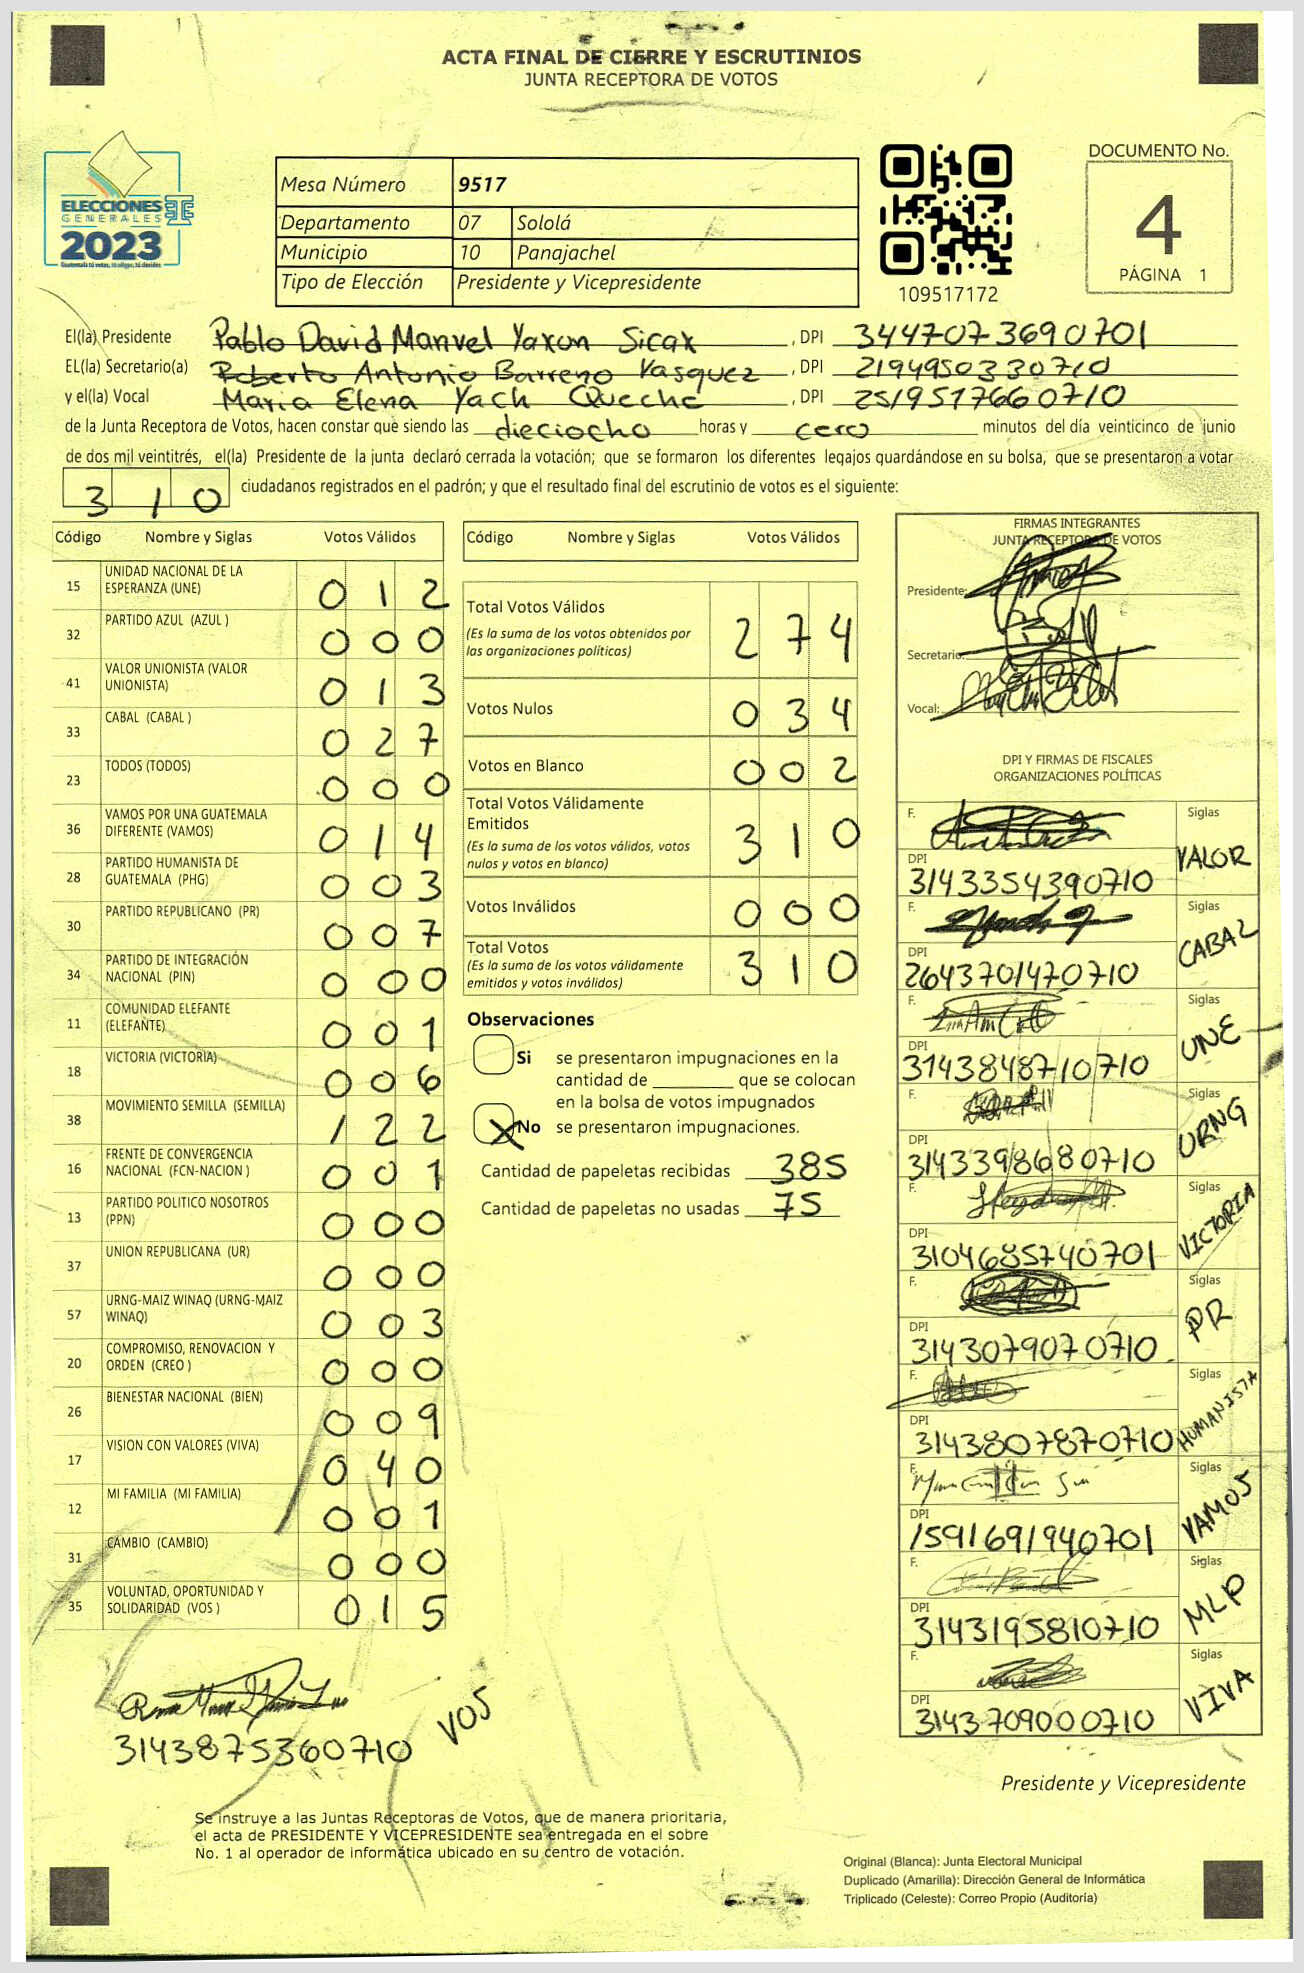 ACTA FINAL DE CIERRE Y ESCRUTINIOS
JUNTA RECEPTORA DE VOTOS
ELECCIONES
GENERALES
2023
Guatemala tú votas, tú eliges, tú decides
Mesa Número 9517
Departamento 07 Sololá
Municipio 10 Panajachel
Tipo de Elección Presidente y Vicepresidente
109517172
DOCUMENTO No.
4
PÁGINA 1
El(la) Presidente Pablo David Manuel Yaxon Sicax , DPI 3447073690701
EL(la) Secretario(a) Roberto Antonio Barreno Vasquez , DPI 2194950330710
y el(la) Vocal Maria Elena Yach Queche , DPI 2519517660710
de la Junta Receptora de Votos, hacen constar que siendo las dieciocho horas y cero minutos del día veinticinco de junio
de dos mil veintitrés, el(la) Presidente de la junta declaró cerrada la votación; que se formaron los diferentes legajos guardándose en su bolsa, que se presentaron a votar
310 ciudadanos registrados en el padrón; y que el resultado final del escrutinio de votos es el siguiente:
Código Nombre y Siglas Votos Válidos
15 UNIDAD NACIONAL DE LA ESPERANZA (UNE) 012
32 PARTIDO AZUL (AZUL ) 000
41 VALOR UNIONISTA (VALOR UNIONISTA) 013
33 CABAL (CABAL ) 027
23 TODOS (TODOS) 000
36 VAMOS POR UNA GUATEMALA DIFERENTE (VAMOS) 014
28 PARTIDO HUMANISTA DE GUATEMALA (PHG) 003
30 PARTIDO REPUBLICANO (PR) 007
34 PARTIDO DE INTEGRACIÓN NACIONAL (PIN) 000
11 COMUNIDAD ELEFANTE (ELEFANTE) 001
18 VICTORIA (VICTORIA) 006
38 MOVIMIENTO SEMILLA (SEMILLA) 122
16 FRENTE DE CONVERGENCIA NACIONAL (FCN-NACION ) 001
13 PARTIDO POLITICO NOSOTROS (PPN) 000
37 UNION REPUBLICANA (UR) 000
57 URNG-MAIZ WINAQ (URNG-MAIZ WINAQ) 003
20 COMPROMISO, RENOVACION Y ORDEN (CREO ) 000
26 BIENESTAR NACIONAL (BIEN) 009
17 VISION CON VALORES (VIVA) 040
12 MI FAMILIA (MI FAMILIA) 001
31 CAMBIO (CAMBIO) 000
35 VOLUNTAD, OPORTUNIDAD Y SOLIDARIDAD (VOS ) 015
3143875360710 VOS
Código Nombre y Siglas Votos Válidos
Total Votos Válidos 274
(Es la suma de los votos obtenidos por
las organizaciones políticas)
Votos Nulos 034
Votos en Blanco 002
Total Votos Válidamente
Emitidos 310
(Es la suma de los votos válidos, votos
nulos y votos en blanco)
Votos Inválidos 000
Total Votos 310
(Es la suma de los votos válidamente
emitidos y votos inválidos)
Observaciones
Si se presentaron impugnaciones en la
cantidad de ________ que se colocan
en la bolsa de votos impugnados
X No se presentaron impugnaciones.
Cantidad de papeletas recibidas 385
Cantidad de papeletas no usadas 75
FIRMAS INTEGRANTES
JUNTA RECEPTORA DE VOTOS
Presidente:
Secretario:
Vocal:
DPI Y FIRMAS DE FISCALES
ORGANIZACIONES POLÍTICAS
F. Siglas VALOR
DPI 3143354390710
F. Siglas CABAL
DPI 2643701470710
F. Siglas UNE
DPI 3143848710710
F. Siglas URNG
DPI 3143398680710
F. Siglas VICTORIA
DPI 3104685740701
F. Siglas PR
DPI 3143079070710
F. Siglas HUMANISTA
DPI 3143807870710
F. Siglas VAMOS
DPI 1591691940701
F. Siglas MLP
DPI 3143195810710
F. Siglas VIVA
DPI 3143709000710
Presidente y Vicepresidente
Se instruye a las Juntas Receptoras de Votos, que de manera prioritaria,
el acta de PRESIDENTE Y VICEPRESIDENTE sea entregada en el sobre
No. 1 al operador de informática ubicado en su centro de votación.
Original (Blanca): Junta Electoral Municipal
Duplicado (Amarilla): Dirección General de Informática
Triplicado (Celeste): Correo Propio (Auditoría)